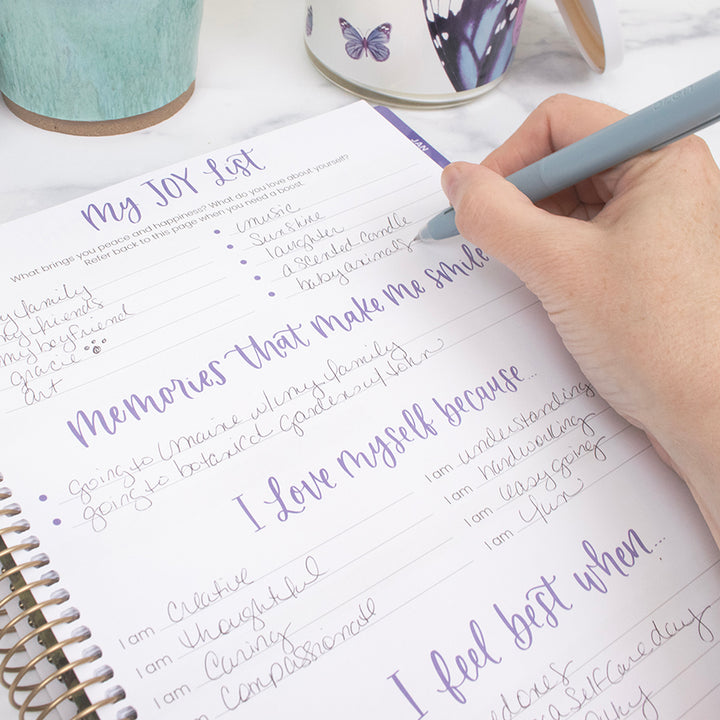 JAN
My JOY List
What brings you peace and happiness? What do you love about yourself?
Refer back to this page when you need a boost.
my family
my friends
my boyfriend
gracie
art
music
Sunshine
laughter
a scented candle
baby animals
Memories that make me smile
going to Maine w/my family
going to botanical gardens w/ John
I Love myself because...
I am creative
I am thoughtful
I am caring
I am compassionate
I am understanding
I am hardworking
I am easy going
I am fun
I feel best when...
a self care day